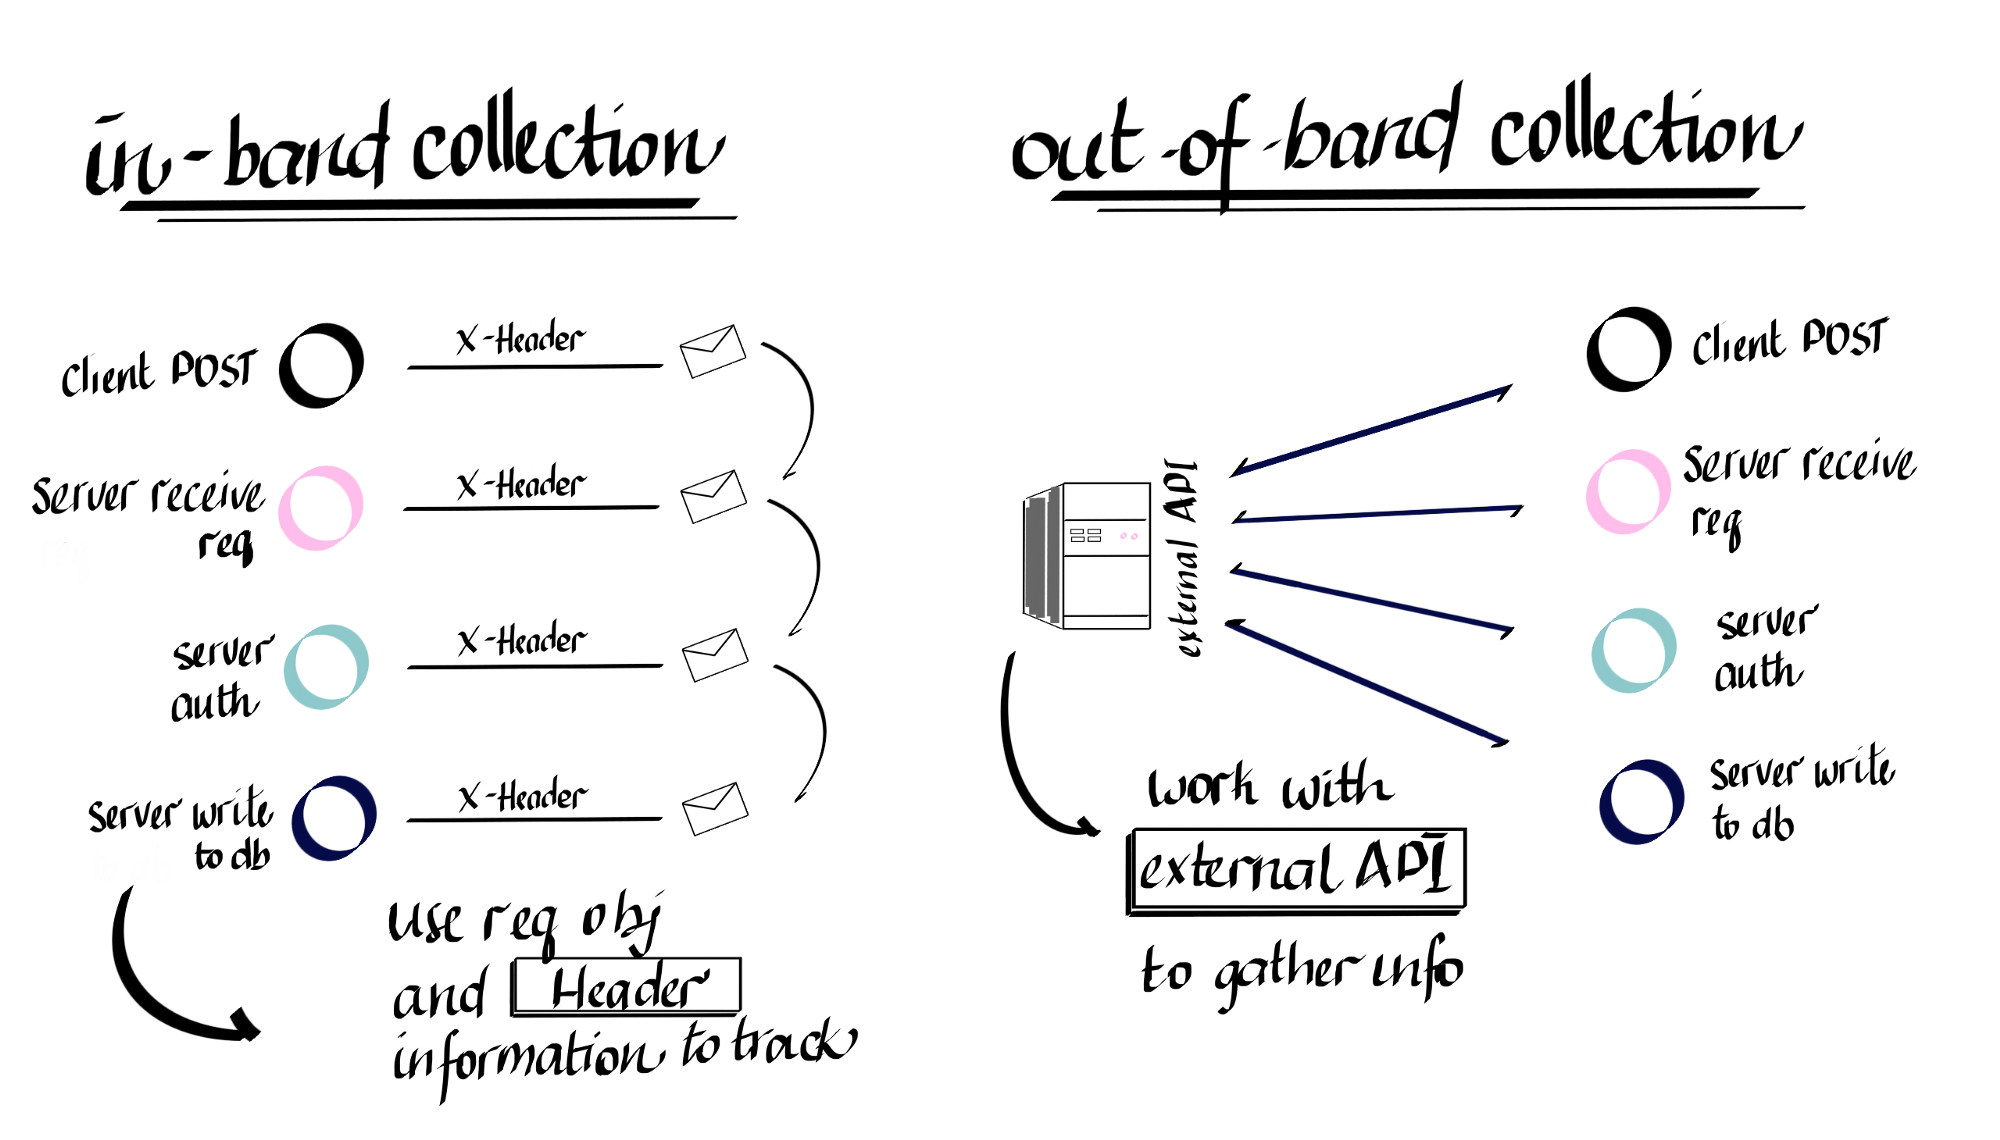 in-band collection
Client POST
X-Header
Server receive
req
X-Header
server
auth
X-Header
server write
to db
X-Header
use req obj
and Header
information to track
out-of-band collection
external API
Client POST
Server receive
req
server
auth
server write
to db
work with
external API
to gather info